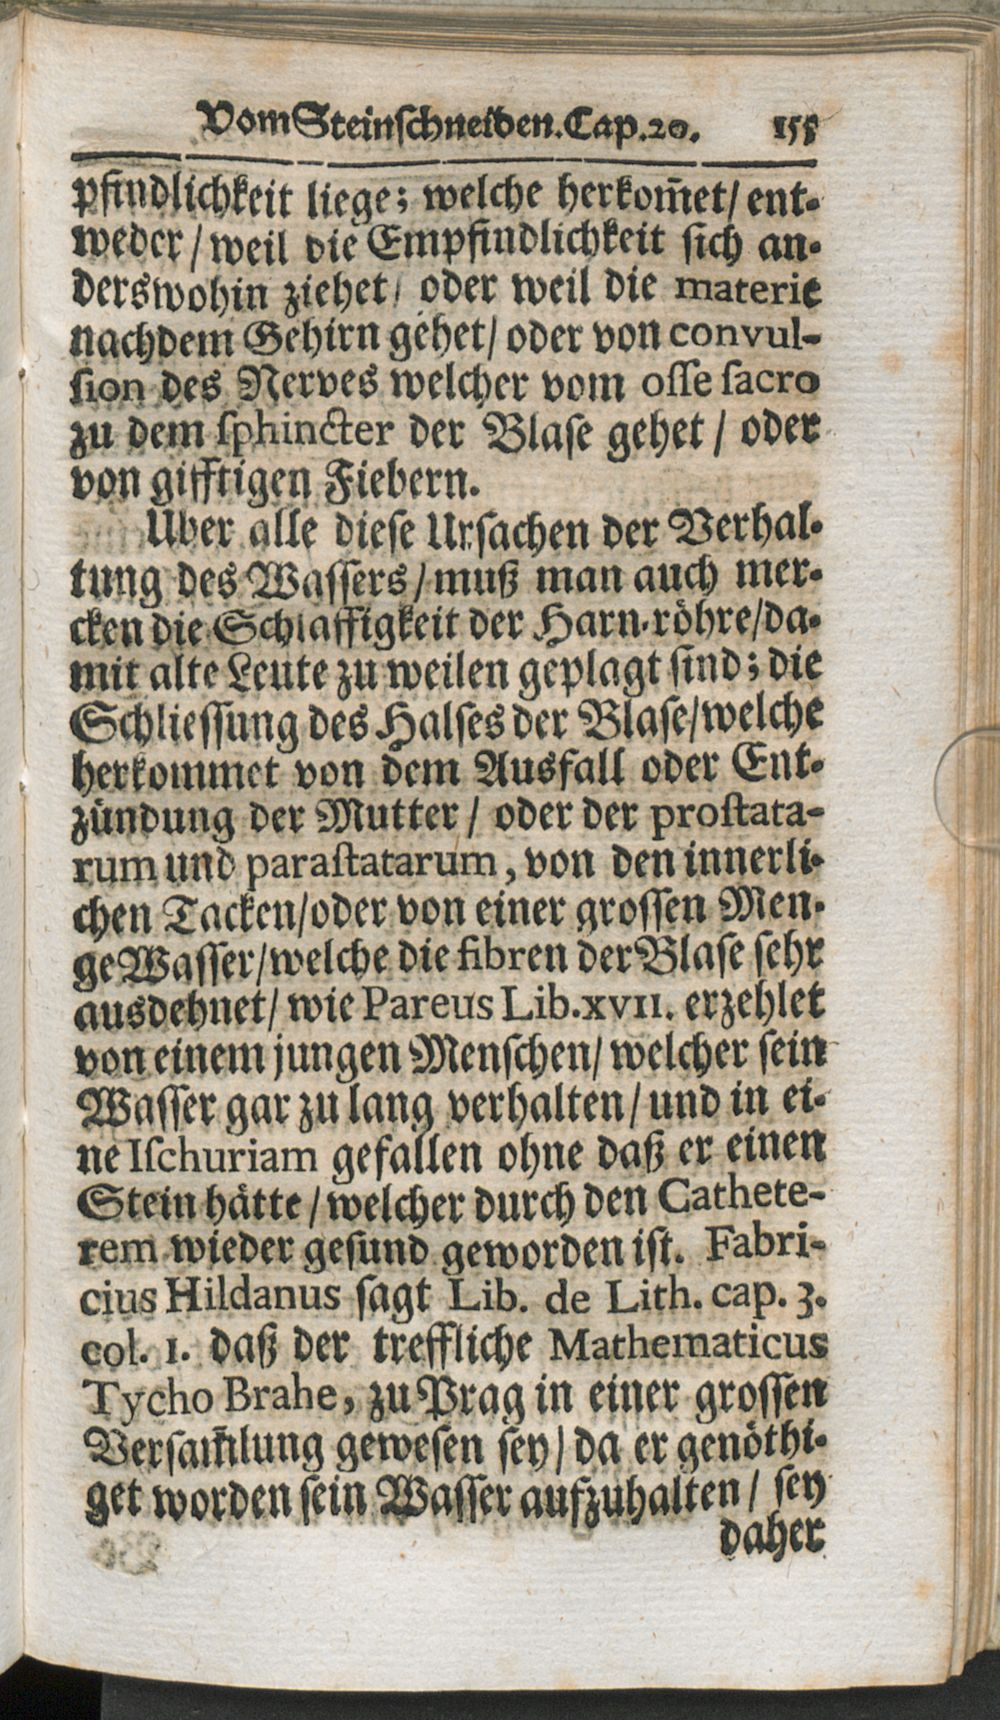 Vom Steinschneiden. Cap. 20. 155
pfindlichkeit liege; welche herkom̄et/ ent-
weder/ weil die Empfindlichkeit sich an-
derswohin ziehet/ oder weil die materie
nachdem Gehirn gehet/ oder von convul-
sion des Nerves welcher vom osse sacro
zu dem sphincter der Blase gehet / oder
von gifftigen Fiebern.
Uber alle diese Ursachen der Verhal-
tung des Wassers / muß man auch mer-
cken die Schlaffigkeit der Harn-röhre/ da-
mit alte Leute zu weilen geplagt sind; die
Schliessung des Halses der Blase/ welche
herkommet von dem Ausfall oder Ent-
zündung der Mutter / oder der prostata-
rum und parastatarum, von den innerli-
chen Tacken/ oder von einer grossen Men-
ge Wasser/ welche die fibren der Blase sehr
ausdehnet/ wie Pareus Lib. XVII. erzehlet
von einem jungen Menschen/ welcher sein
Wasser gar zu lang verhalten/ und in ei-
ne Ischuriam gefallen ohne daß er einen
Stein hätte / welcher durch den Cathete-
rem wieder gesund geworden ist. Fabri-
cius Hildanus sagt Lib. de Lith. cap. 3.
col. 1. daß der treffliche Mathematicus
Tycho Brahe, zu Prag in einer grossen
Versam̄lung gewesen sey/ da er genöthi-
get worden sein Wasser aufzuhalten/ sey
daher